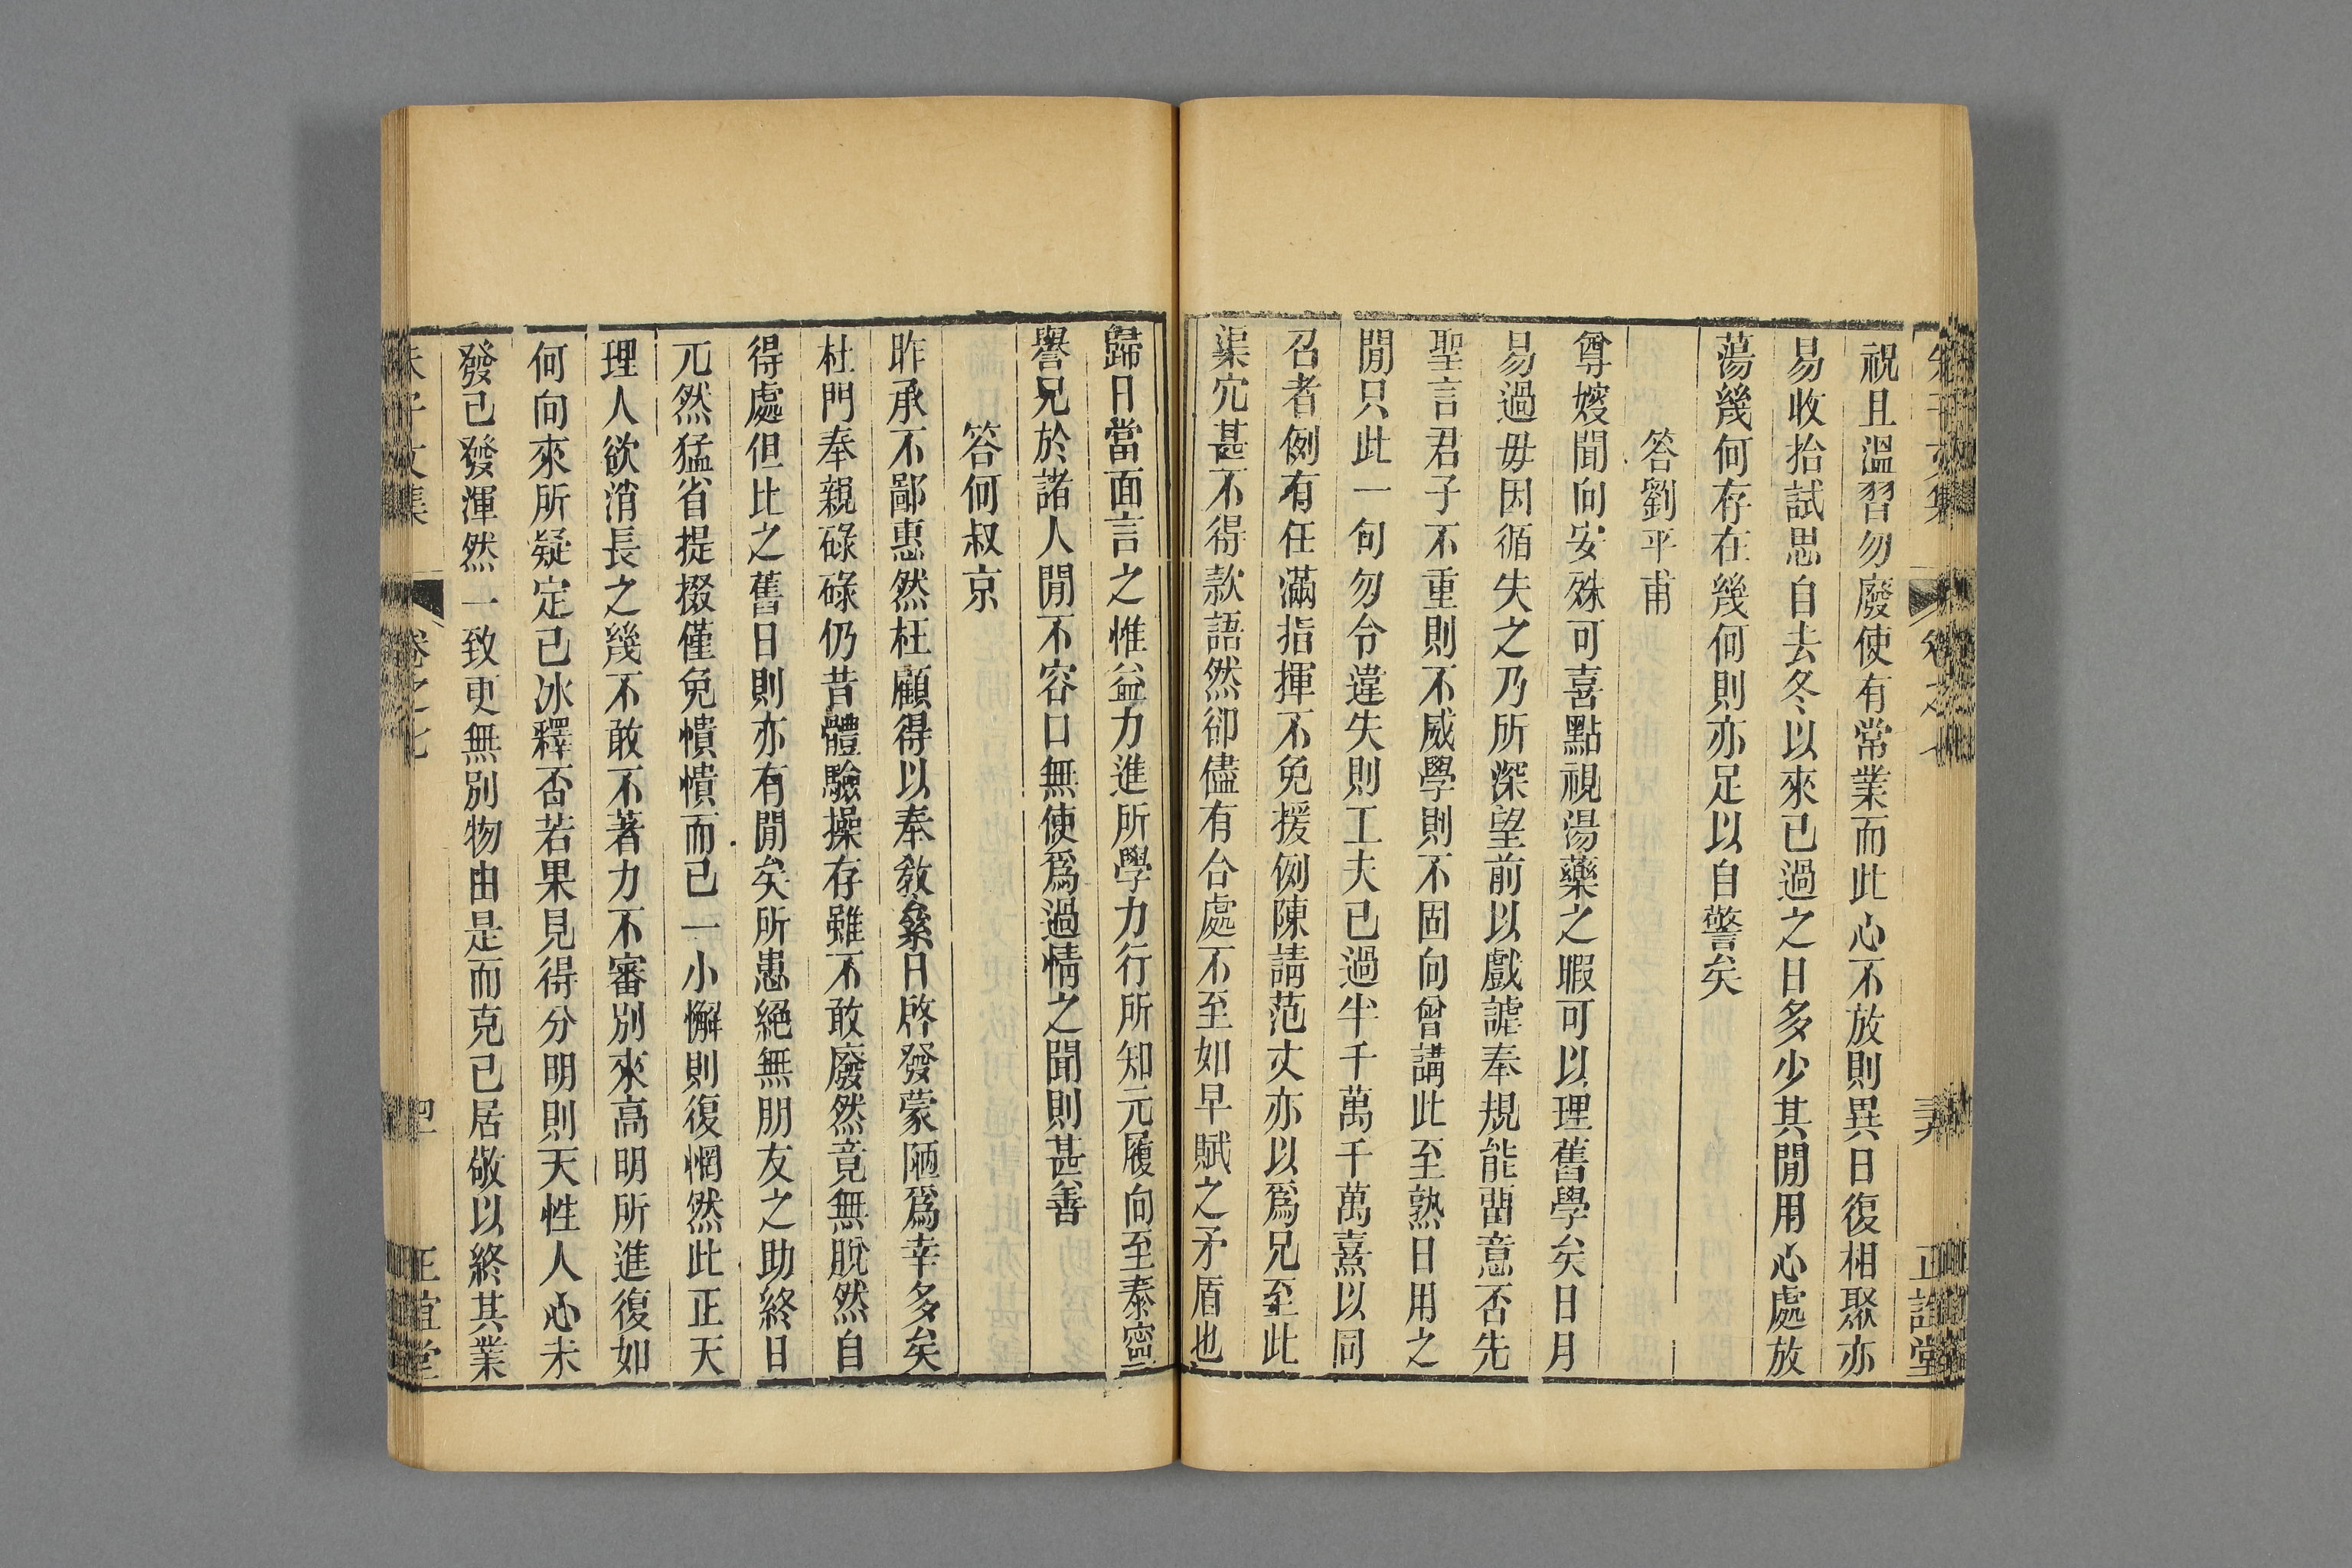 朱子文集 卷之七 三九 正誼堂
祝且溫習勿廢使有常業而此心不放則異日復相聚亦
易收拾試思自去冬以來已過之日多少其閒用心處放
蕩幾何存在幾何則亦足以自警矣
答劉平甫
尊嫂聞向安殊可喜點視湯藥之暇可以理舊學矣日月
易過毋因循失之乃所深望前以戲謔奉規能畱意否先
聖言君子不重則不威學則不固向曾講此至熟日用之
閒只此一句勿令違失則工夫已過半千萬千萬熹以同
召者例有任滿指揮不免援例陳請范丈亦以爲兄至此
渠宂甚不得款語然卻儘有合處不至如早賦之矛盾也
歸日當面言之惟益力進所學力行所知元履向至泰寧
譽兄於諸人閒不容口無使爲過情之聞則甚善
答何叔京
昨承不鄙惠然枉顧得以奉敎絫日啓發蒙陋爲幸多矣
杜門奉親碌碌仍昔體驗操存雖不敢廢然竟無脫然自
得處但比之舊日則亦有閒矣所患絕無朋友之助終日
兀然猛省提掇僅免憒憒而已一小懈則復惘然此正天
理人欲消長之幾不敢不著力不審別來高明所進復如
何向來所疑定已冰釋否若果見得分明則天性人心未
發已發渾然一致更無別物由是而克己居敬以終其業
朱子文集 卷之七 四一 正誼堂